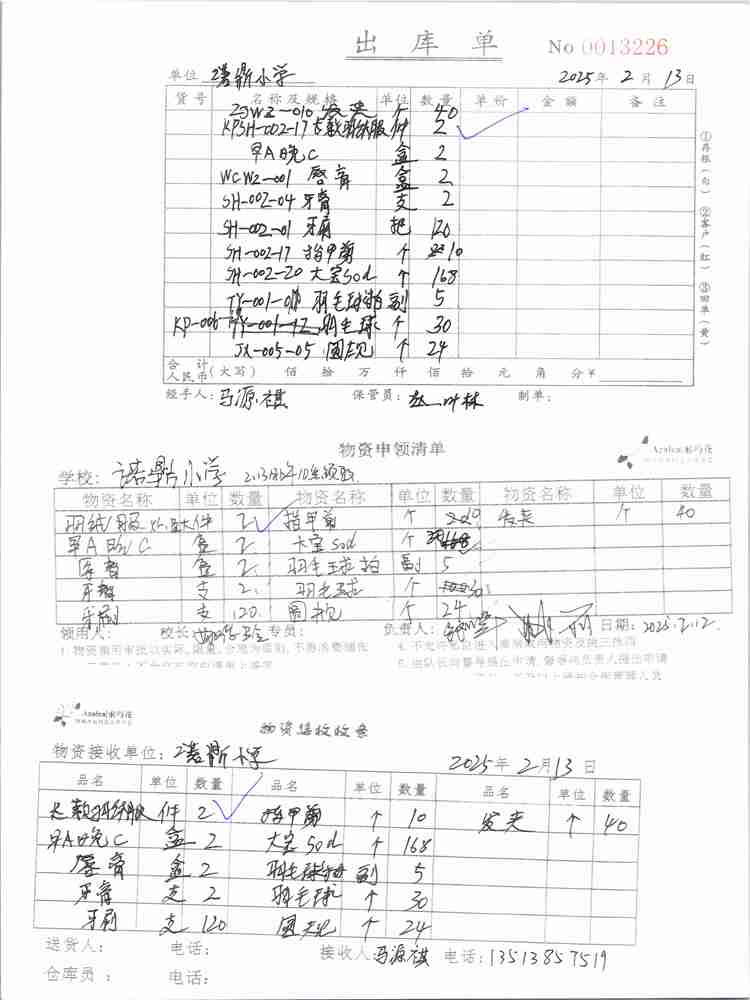 出 库 单 No 0013226
单位 诺鼎小学 2025年 2月 13日
货号 名称及规格 单位 数量 单价 金额 备注
ZJWZ-010 发夹 个 40
KPSH-002-17 长款羽绒服 件 2
早A晚C 盒 2
WCWZ-001 唇膏 盒 2
SH-002-04 牙膏 支 2
SH-002-01 牙刷 把 120
SH-002-17 指甲剪 个 10
SH-002-20 大宝Sod 个 168
TY-001-01 羽毛球拍 副 5
KP-006 羽毛球 个 30
JX-005-05 圆规 个 24
合计
人民币(大写) 佰 拾 万 仟 佰 拾 元 角 分 ¥
经手人: 马源祺 保管员: 制单:
①存根(白) ②客户(红) ③回单(黄)
物资申领清单
Azalea
学校: 诺鼎小学
物资名称 单位 数量 物资名称 单位 数量 物资名称 单位 数量
羽绒服 件 2 指甲剪 个 发夹 个 40
早A晚C 盒 2 大宝Sod 个
唇膏 盒 2 羽毛球拍 副 5
牙膏 支 2 羽毛球 个 30
牙刷 支 120 圆规 个 24
领用人: 校长: 专员: 负责人: 日期: 2025.2.12
Azalea
物资接收收条
物资接收单位: 诺鼎小学 2025年 2月 13日
品名 单位 数量 品名 单位 数量 品名 单位 数量
长款羽绒服 件 2 指甲剪 个 10 发夹 个 40
早A晚C 盒 2 大宝Sod 个 168
唇膏 盒 2 羽毛球拍 副 5
牙膏 支 2 羽毛球 个 30
牙刷 支 120 圆规 个 24
送货人: 电话: 接收人 马源祺 电话: 13513857519
仓库员: 电话: